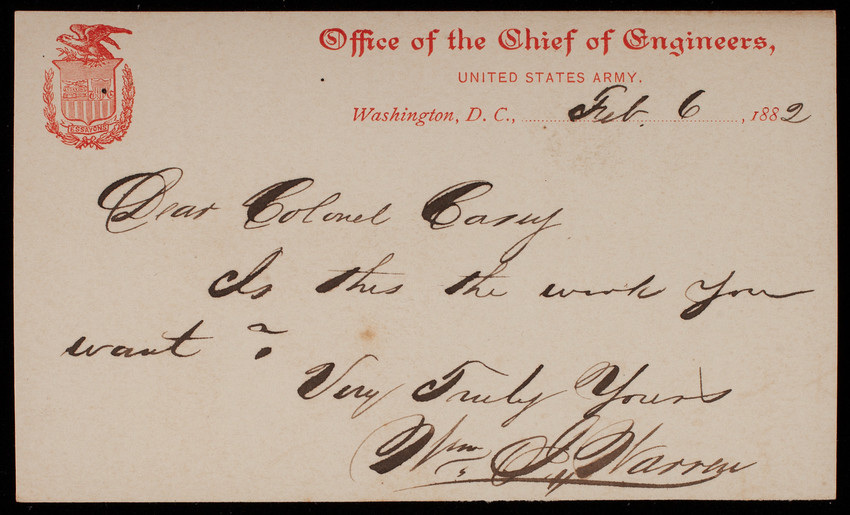 Office of the Chief of Engineers,
UNITED STATES ARMY.
Washington, D. C., Feb. 6, 1882
ESSAYONS
Dear Colonel Casey
Is this the work you
want?
Very Truly Yours
Wm. J. Warren